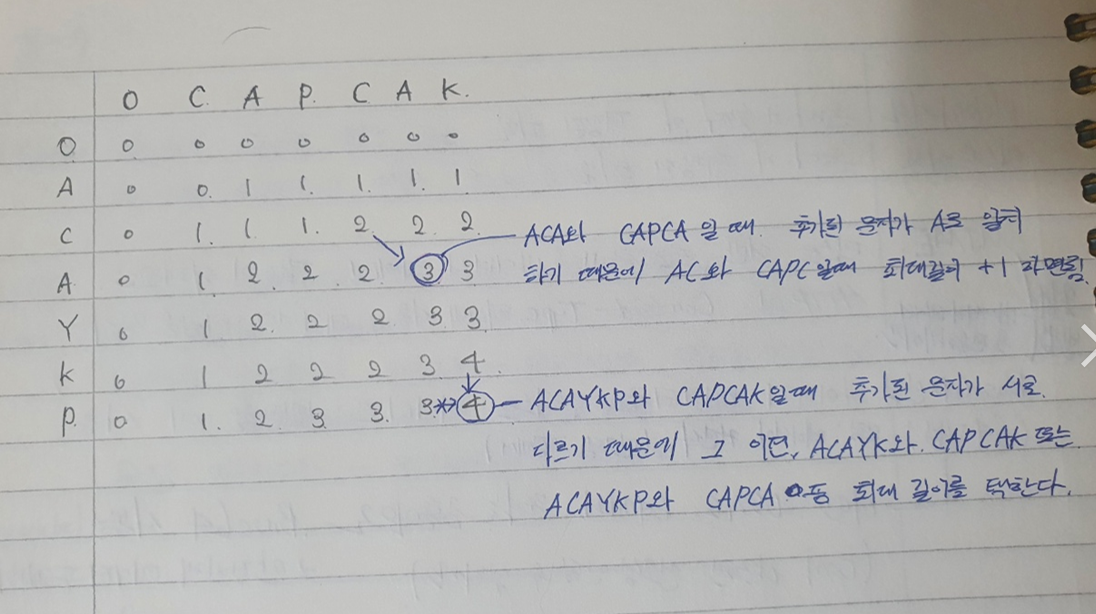 O C. A P. C A K.
O 0 0 0 0 0 0 0
A 0 0. 1 1. 1. 1. 1
C 0 1. 1. 1. 2 2. 2.
ACA와 CAPCA 일 때. 추가된 문자가 A로 일치
A 0 1. 2 2. 2. 3 3
하기 때문에 AC와 CAPC일때 최대길이 +1 하면됨.
Y 0 1. 2. 2 2. 3. 3.
K 0 1 2 2 2 3 4.
P. 0 1. 2. 3. 3. 3 4 ACAYKP와 CAPCAK일때 추가된 문자가 서로.
다르기 때문에 그 이전, ACAYK와 CAPCAK 또는
ACAYKP와 CAPCA 중 최대 길이를 택한다.